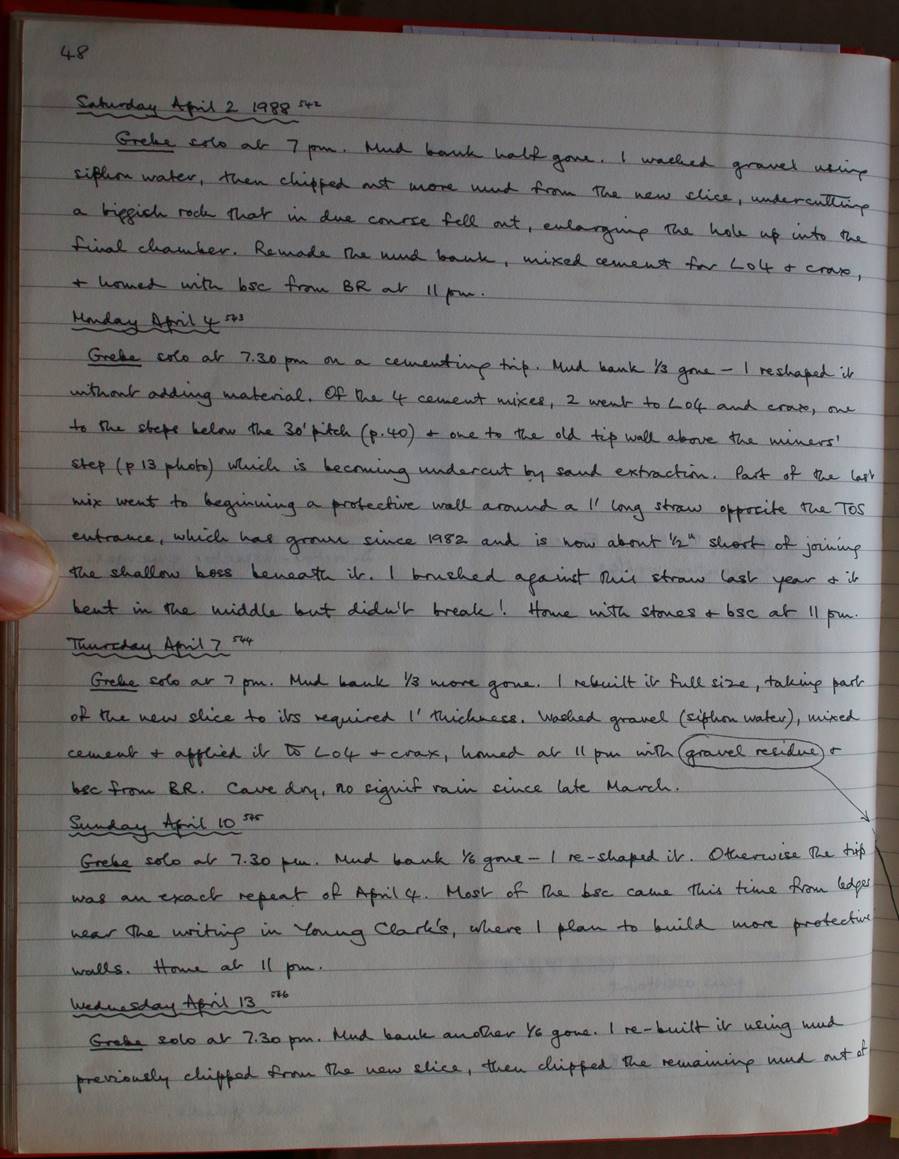 48
Saturday April 2 1988 542
Grebe solo at 7 pm. Mud bank half gone. I washed gravel using
siphon water, then chipped out more mud from the new slice, undercutting
a biggish rock that in due course fell out, enlarging the hole up into the
final chamber. Remade the mud bank, mixed cement for L04 + crax,
+ homed with bsc from BR at 11 pm.
Monday April 4 543
Grebe solo at 7.30 pm on a cementing trip. Mud bank 1/3 gone – I reshaped it
without adding material. Of the 4 cement mixes, 2 went to L04 and crax, one
to the steps below the 30' pitch (p.40) + one to the old tip wall above the miners'
step (p 13 photo) which is becoming undercut by sand extraction. Part of the last
mix went to beginning a protective wall around a 1' long straw opposite the TOS
entrance, which has grown since 1982 and is now about 1/2" short of joining
the shallow boss beneath it. I brushed against this straw last year + it
bent in the middle but didn't break! Home with stones + bsc at 11 pm.
Thursday April 7 544
Grebe solo at 7 pm. Mud bank 1/3 more gone. I rebuilt it full size, taking part
of the new slice to its required 1' thickness. Washed gravel (siphon water), mixed
cement + applied it to L04 + crax, homed at 11 pm with gravel residue +
bsc from BR. Cave dry, no signif rain since late March.
Sunday April 10 545
Grebe solo at 7.30 pm. Mud bank 1/6 gone – I re-shaped it. Otherwise the trip
was an exact repeat of April 4. Most of the bsc came this time from ledges
near the writing in Young Clark's, where I plan to build more protective
walls. Home at 11 pm.
Wednesday April 13 546
Grebe solo at 7.30 pm. Mud bank another 1/6 gone. I re-built it using mud
previously chipped from the new slice, then chipped the remaining mud out of